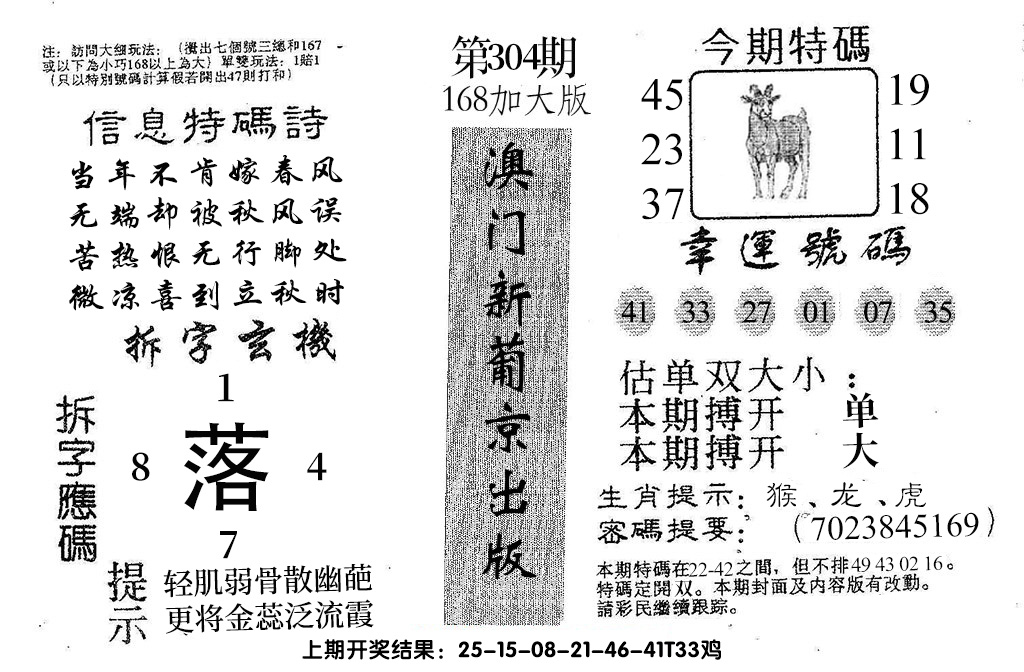 注：訪問大细玩法：（攪出七個號三總和167
或以下為小巧168以上為大）單雙玩法：1賠1
（只以特別號碼計算假若開出47則打和）
信息特碼詩
当年不肯嫁春风
无端却被秋风误
苦热恨无行脚处
微凉喜到立秋时
拆字玄機
拆字應碼
1
8 落 4
7
提示
轻肌弱骨散幽葩
更将金蕊泛流霞
第304期
168加大版
澳门新葡京出版
今期特碼
45 19
23 11
37 18
幸運號碼
41 33 27 01 07 35
估单双大小：
本期搏开 单
本期搏开 大
生肖提示：猴、龙、虎
密碼提要：（7023845169）
本期特碼在22-42之間，但不排49 43 02 16。
特碼定開双。本期封面及内容版有改動。
請彩民繼續跟踪。
上期开奖结果：25-15-08-21-46-41T33鸡